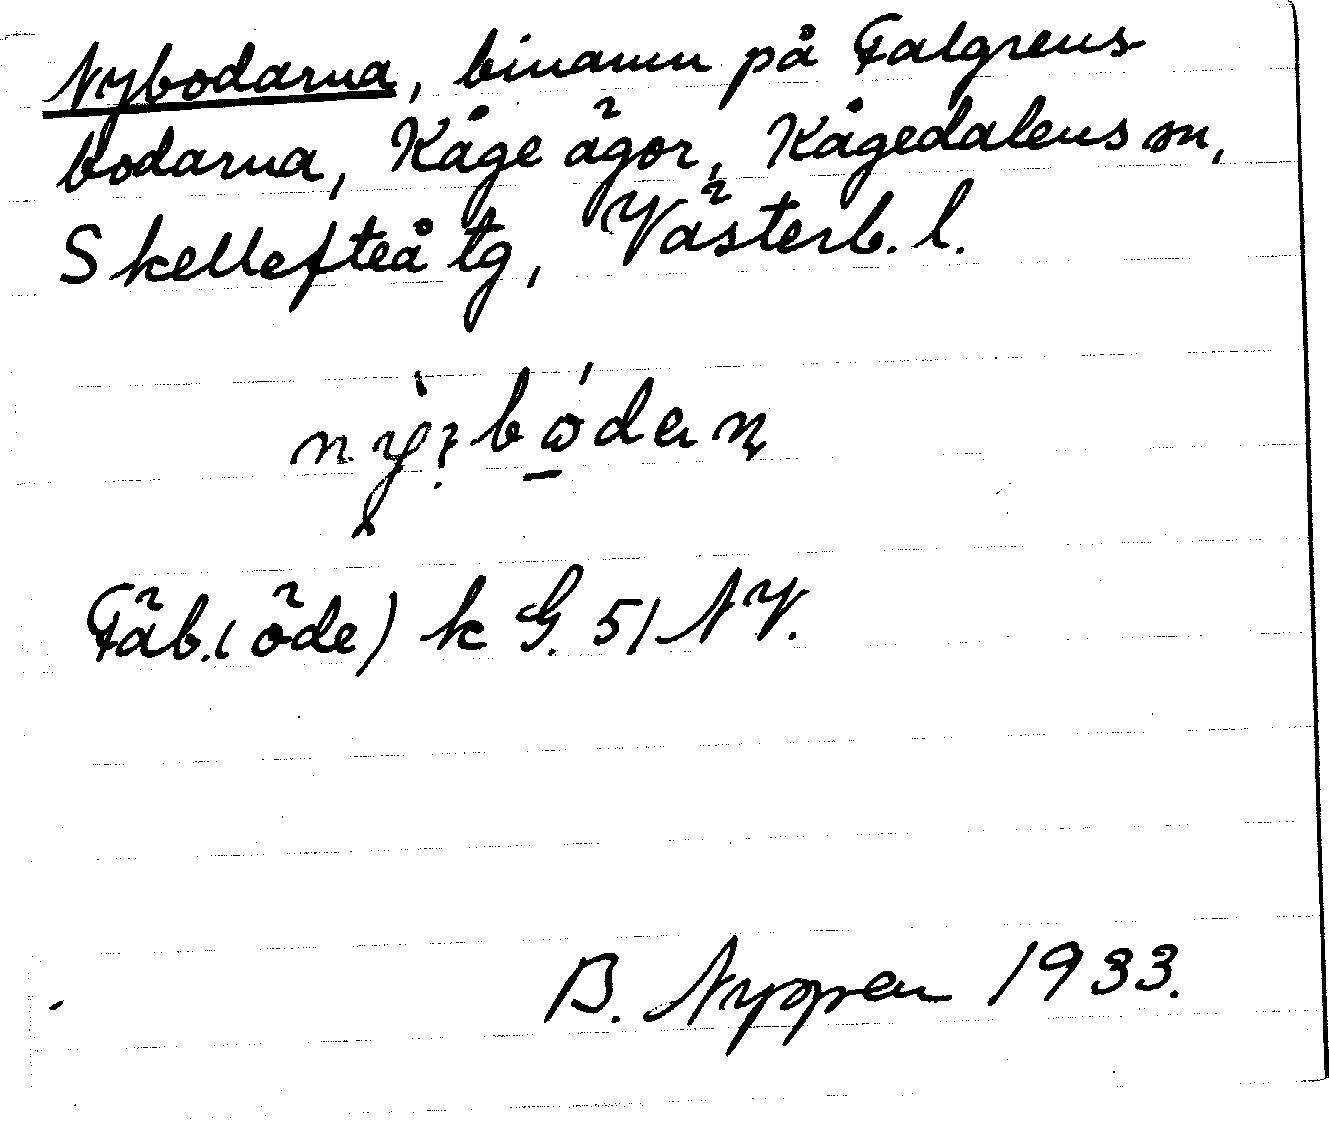 Nybodarna, binamn på Falgrens-
bodarna, Kåge ägor, Kågedalens sn,
Skellefteå tg, Västerb. l.
Fäb. (öde) k G. 51 NV.
B. Nyppen 1933.